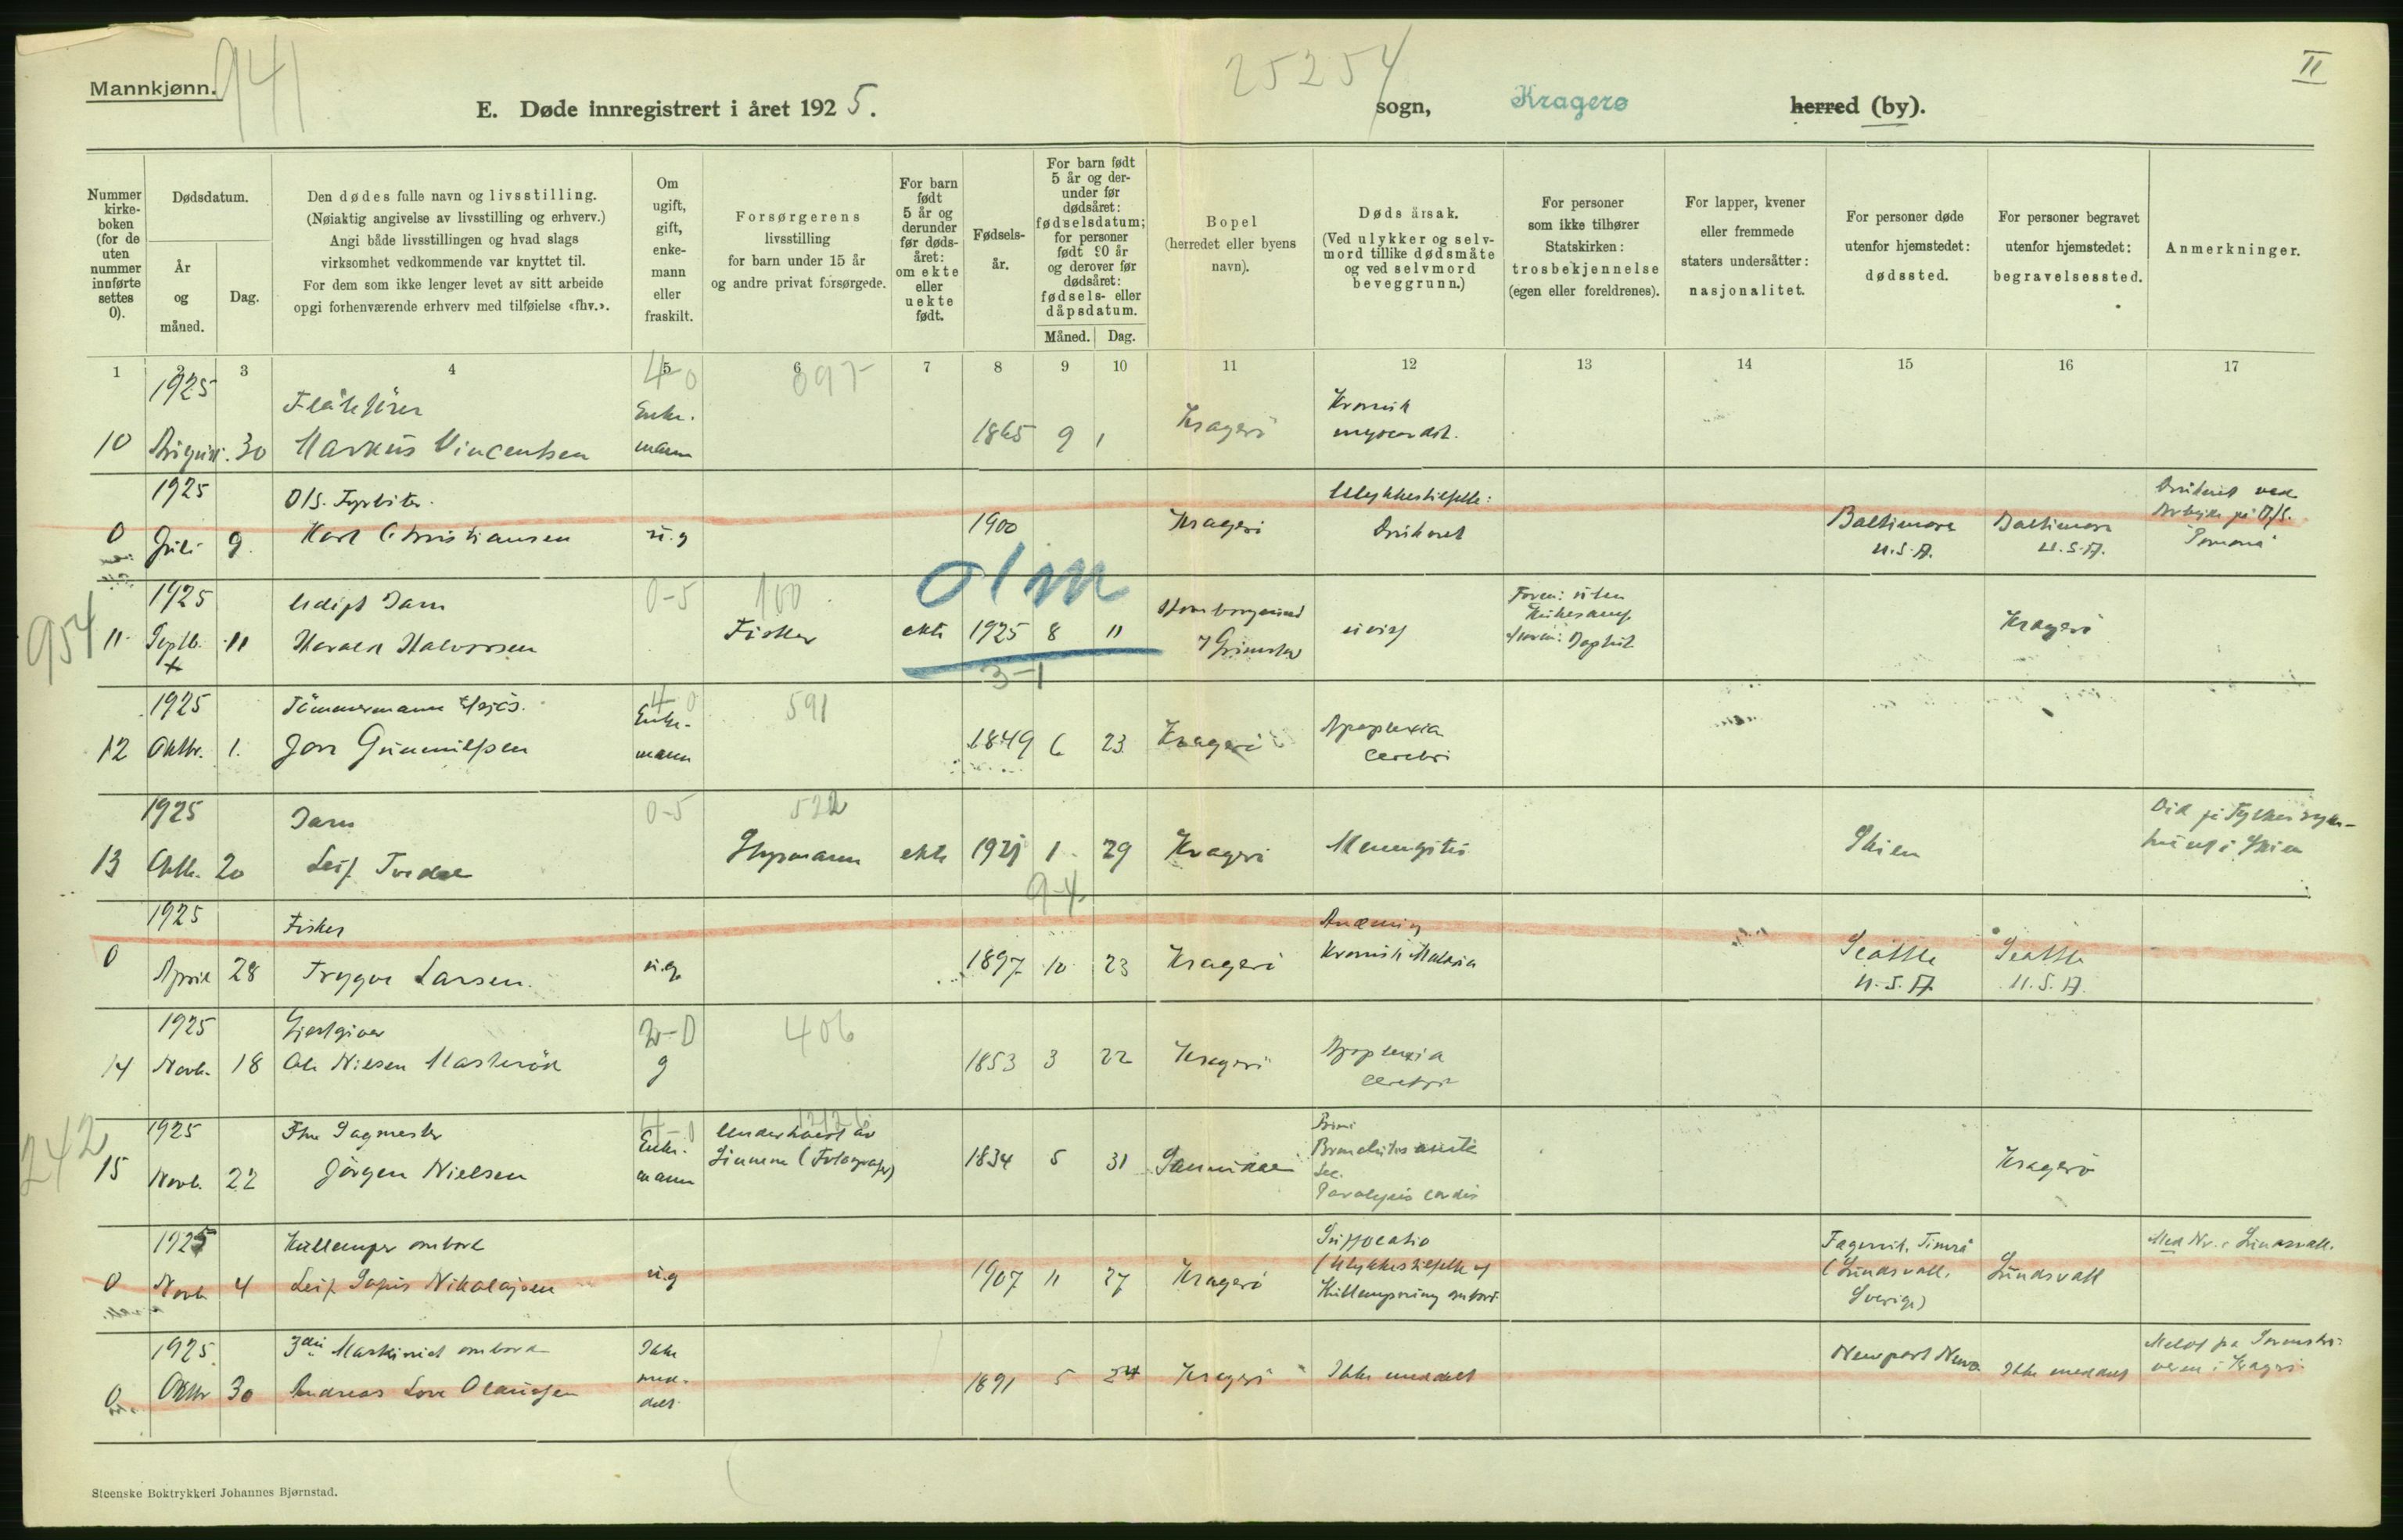 Mannkjønn.
941
25254
II
E. Døde innregistrert i året 1925.
sogn,
Kragerø
herred (by).
Nummer kirke-boken (for de uten nummer innførte settes 0).
Dødsdatum.
År og måned.
Dag.
Den dødes fulle navn og livsstilling.
(Nøiaktig angivelse av livsstilling og erhverv.)
Angi både livsstillingen og hvad slags
virksomhet vedkommende var knyttet til.
For dem som ikke lenger levet av sitt arbeide
opgi forhenværende erhverv med tilføielse «fhv.».
Om ugift, gift, enke-mann eller fraskilt.
Forsørgerens
livsstilling
for barn under 15 år
og andre privat forsørgede.
For barn født 5 år og derunder før døds-året: om ekte eller uekte født.
Fødsels-år.
For barn født 5 år og der-under før dødsåret: fødselsdatum; for personer født 90 år og derover før dødsåret: fødsels- eller dåpsdatum.
Måned.
Dag.
Bopel
(herredet eller byens navn).
Dødsårsak.
(Ved ulykker og selv-mord tillike dødsmåte og ved selvmord beveggrunn.)
For personer som ikke tilhører Statskirken: trosbekjennelse (egen eller foreldrenes).
For lapper, kvener eller fremmede staters undersåtter: nasjonalitet.
For personer døde utenfor hjemstedet: dødssted.
For personer begravet utenfor hjemstedet: begravelsessted.
Anmerkninger.
1 2 3 4 5 6 7 8 9 10 11 12 13 14 15 16 17
1925 4-0 097
10 August 30 Markus Vincentsen Enke-mann 1865 9 1 Kragerø Kronisk myocardit.
1925 Ulykkestilfelle:
0 Juli 9 Karl Christiansen ug 1900 Kragerø Druknet Baltimore U.S.A. Baltimore U.S.A. Druknet ved Arbeide på D/S.
1925 Udøpt Barn 0-5 100 olm
954 11 Septb. 11 Harald Halvorsen Fisker ekte 1925 8 11 Grimstad uviss Kragerø
3-1
1925 Tømmermann 4-0 591
12 Oktbr. 1. Jon Gunnulfsen Enke-mann 1849 6 23 Kragerø Apoplexia cerebri
1925 Barn 0-5 522
13 Oktb. 20 Leif Tvedt ekte 1921 1 29 Kragerø Meningitis Skien Død på Fylkessyke-huset i Skien
9-4
1925 Fisker
0 April 28 Trygve Larsen. ug. 1897 10 23 Kragerø Kronisk Malaria Seattle U.S.A. Seattle U.S.A.
1925 Gjestgiver 2-0 406
14 Novb. 18 Ole Nilsen g 1853 3 22 Kragerø Apoplexia cerebri
242
1925 Fhv Sagmester 4-0 Underholdt av
15 Novb. 22 Jørgen Nielsen Enke-mann Sønnen (Fotograf) 1834 5 31 Sannidal Bronchitis acuta Sec. Paralysis cordis Kragerø
1925 Kullemper ombord
0 Novb 4 Leif Nikolajsen ug 1907 11 27 Kragerø Suffocatio (Ulykkestilfelle v/ Kullempning ombord Timrå (Sundsvall, Sverige) Sundsvall
1925 3die Maskinist ombord
0 Oktbr 30 Andreas Olaussen Ikke med-delt 1891 5 24 Kragerø Ikke meddelt Newport News Ikke meddelt Meldt fra i Kragerø
Steenske Boktrykkeri Johannes Bjørnstad.